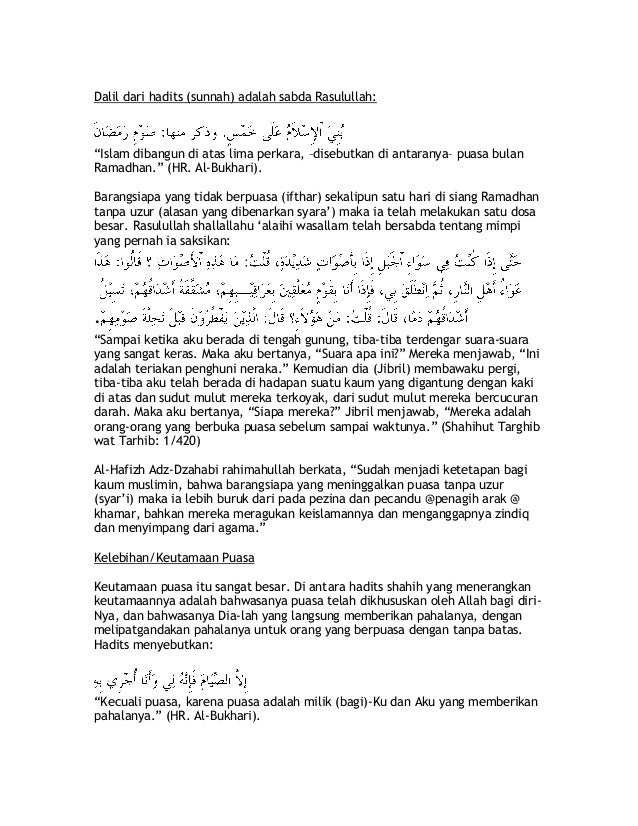 Dalil dari hadits (sunnah) adalah sabda Rasulullah:
بُنِيَ الْإِسْلَامُ عَلَى خَمْسٍ. وذكر منها: صَوْمِ رَمَضَانَ
“Islam dibangun di atas lima perkara, –disebutkan di antaranya– puasa bulan
Ramadhan.” (HR. Al-Bukhari).
Barangsiapa yang tidak berpuasa (ifthar) sekalipun satu hari di siang Ramadhan
tanpa uzur (alasan yang dibenarkan syara’) maka ia telah melakukan satu dosa
besar. Rasulullah shallallahu ‘alaihi wasallam telah bersabda tentang mimpi
yang pernah ia saksikan:
حَتَّى إِذَا كُنْتُ فِي سَوَاءِ الْجَبَلِ إِذَا بِأَصْوَاتٍ شَدِيْدَةٍ، قُلْتُ: مَا هَذِهِ الْأَصْوَاتِ ؟ قَالُوا: هَذَا
عَوَاءُ أَهْلِ النَّارِ، ثُمَّ انْطَلَقَ بِي، فَإِذَا أَنَا بِقَوْمٍ مُعَلَّقِيْنَ بِعَرَاقِيْبِهِمْ، مُشَقَّقَةٌ أَشْدَاقُهُمْ، تَسِيْلُ
أَشْدَاقُهُمْ دَمًا، قَالَ: قُلْتُ: مَنْ هَؤُلَاءِ؟ قَالَ: الَّذِيْنَ يَفْطُرُوْنَ قَبْلَ تَحِلَّةَ صَوْمِهِمْ.
“Sampai ketika aku berada di tengah gunung, tiba-tiba terdengar suara-suara
yang sangat keras. Maka aku bertanya, “Suara apa ini?” Mereka menjawab, “Ini
adalah teriakan penghuni neraka.” Kemudian dia (Jibril) membawaku pergi,
tiba-tiba aku telah berada di hadapan suatu kaum yang digantung dengan kaki
di atas dan sudut mulut mereka terkoyak, dari sudut mulut mereka bercucuran
darah. Maka aku bertanya, “Siapa mereka?” Jibril menjawab, “Mereka adalah
orang-orang yang berbuka puasa sebelum sampai waktunya.” (Shahihut Targhib
wat Tarhib: 1/420)
Al-Hafizh Adz-Dzahabi rahimahullah berkata, “Sudah menjadi ketetapan bagi
kaum muslimin, bahwa barangsiapa yang meninggalkan puasa tanpa uzur
(syar’i) maka ia lebih buruk dari pada pezina dan pecandu @penagih arak @
khamar, bahkan mereka meragukan keislamannya dan menganggapnya zindiq
dan menyimpang dari agama.”
Kelebihan/Keutamaan Puasa
Keutamaan puasa itu sangat besar. Di antara hadits shahih yang menerangkan
keutamaannya adalah bahwasanya puasa telah dikhususkan oleh Allah bagi diri-
Nya, dan bahwasanya Dia-lah yang langsung memberikan pahalanya, dengan
melipatgandakan pahalanya untuk orang yang berpuasa dengan tanpa batas.
Hadits menyebutkan:
إِلاَّ الصِّيَامَ فَإِنَّهُ لِي وَأَنَا أُجْزِي بِهِ
“Kecuali puasa, karena puasa adalah milik (bagi)-Ku dan Aku yang memberikan
pahalanya.” (HR. Al-Bukhari).